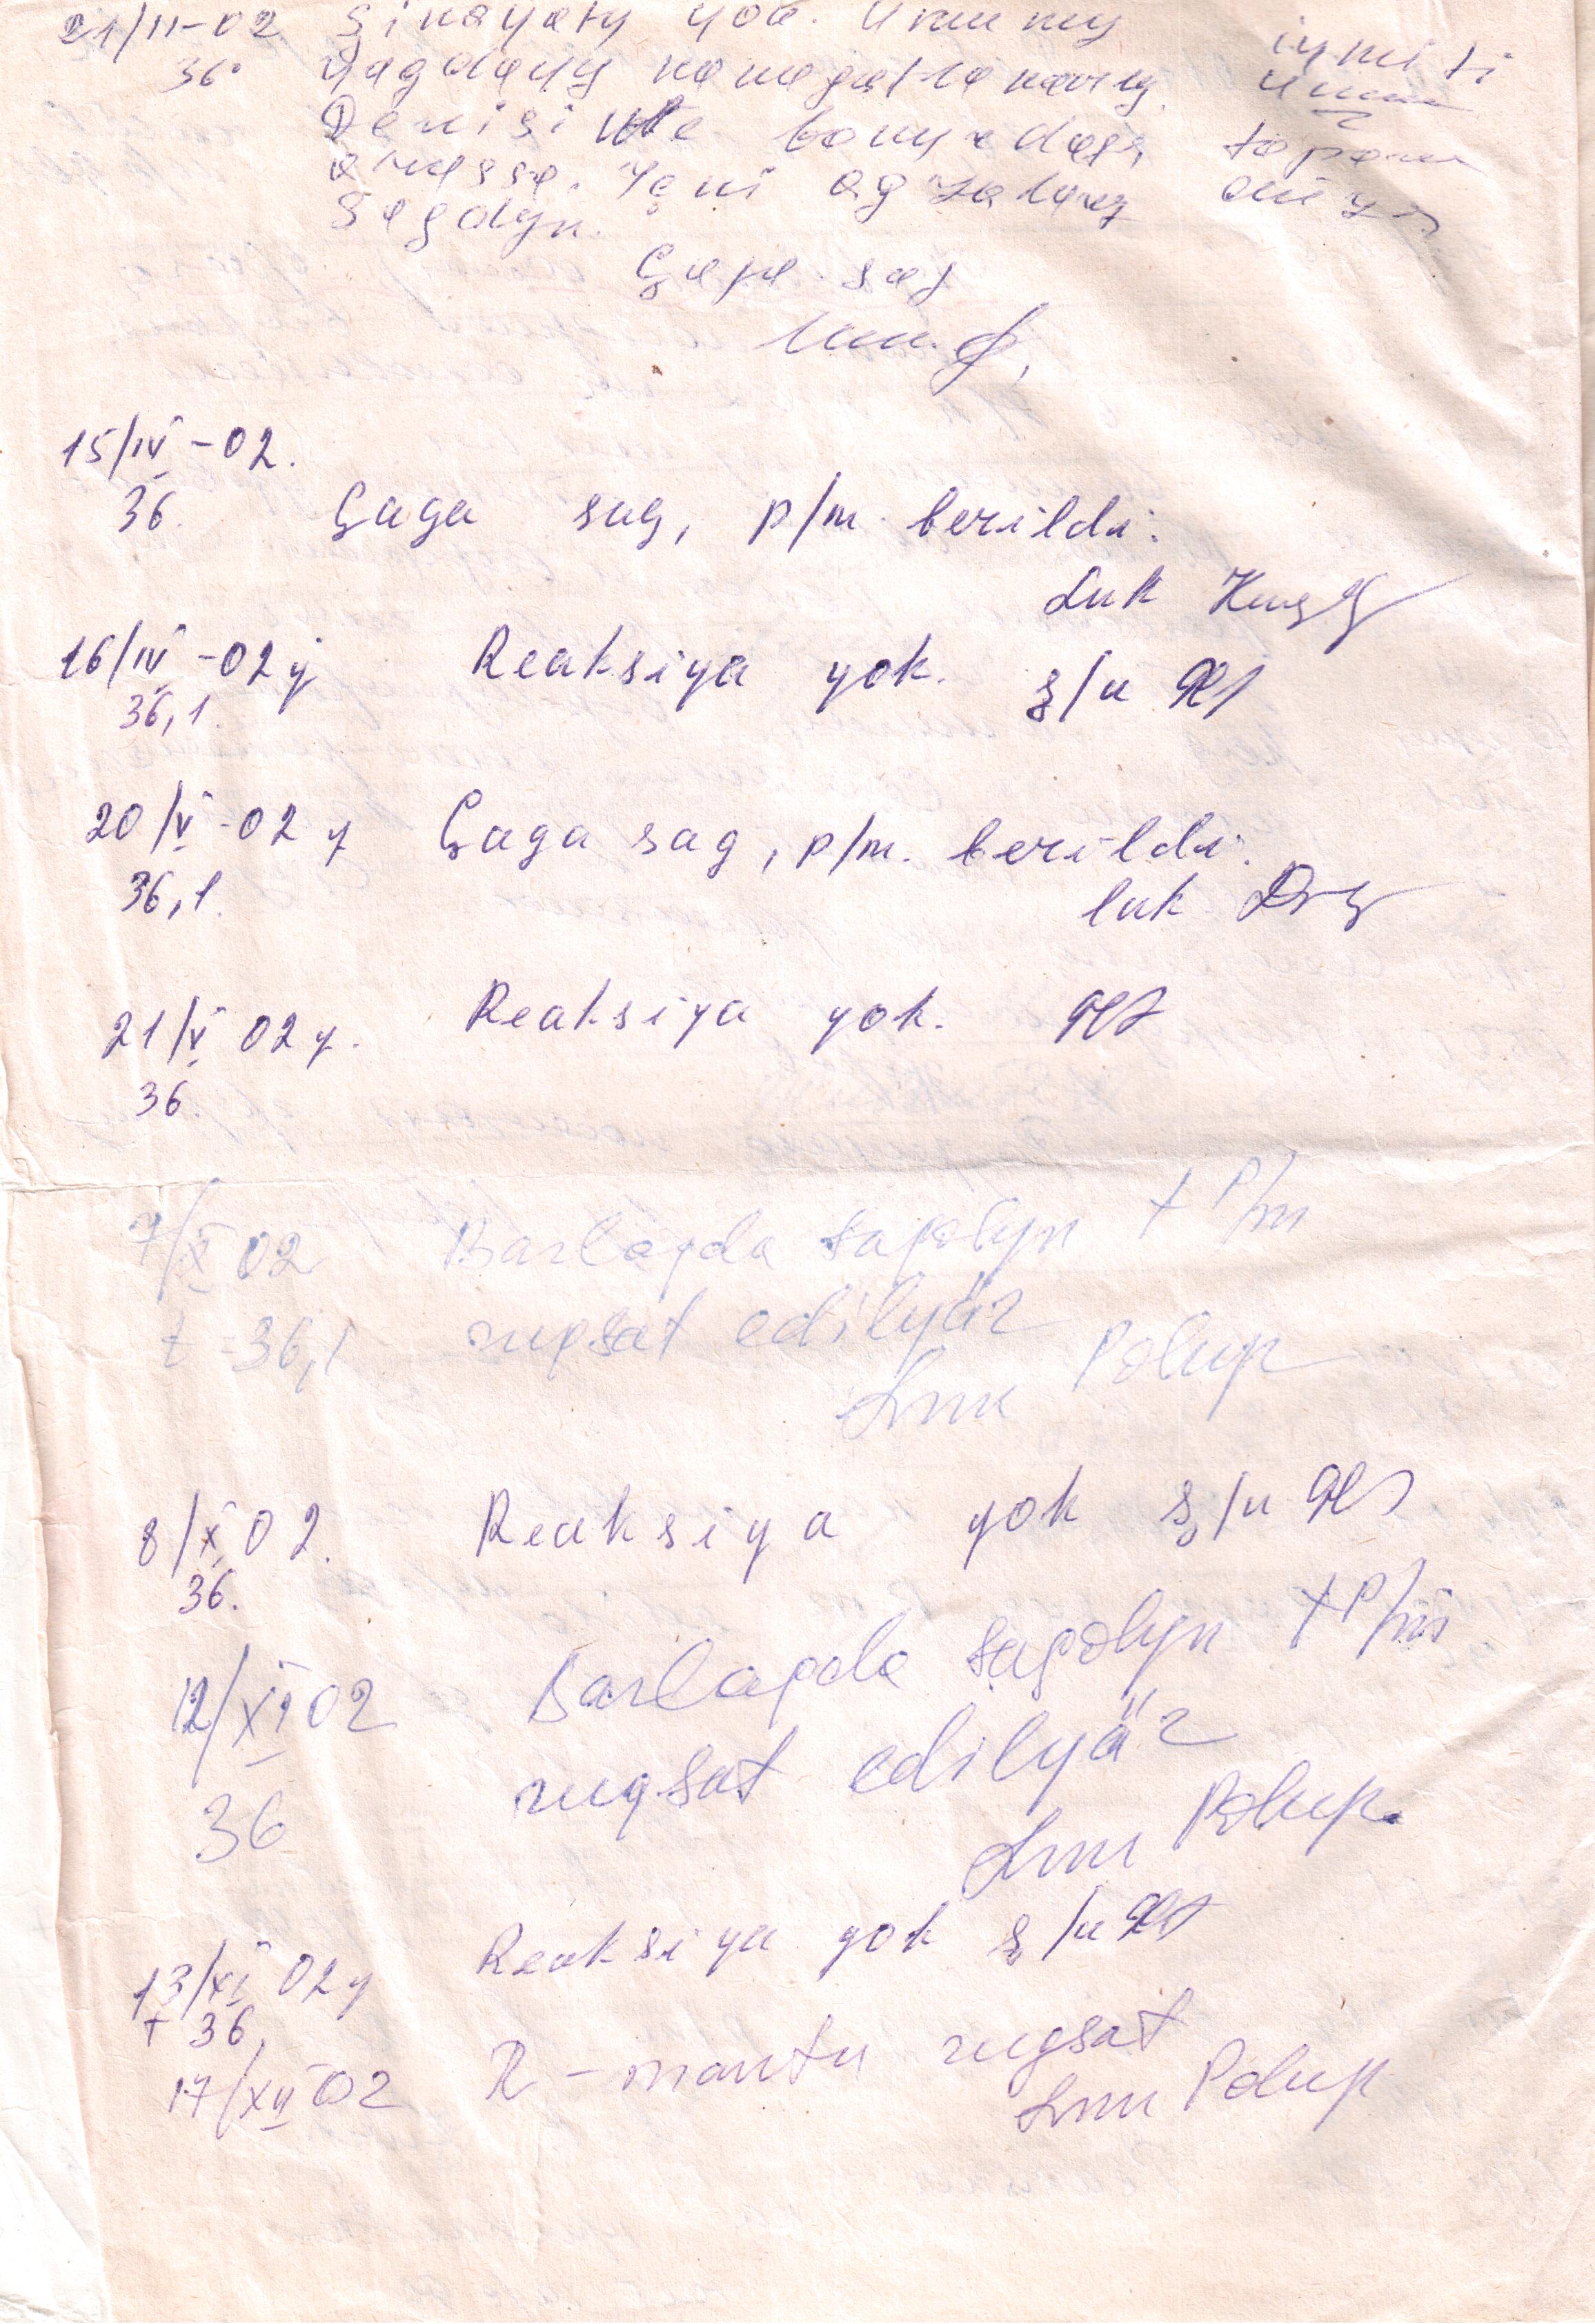 21/II-02 Şikaýaty ýok. Umumy
36° ýagdaýy kanagatlanarly. iýmiti
Derisi we bokurdagy
arassa. Içki agzalary
Sagdyn.
Çaga sag
15/IV-02.
36. Çaga sag, p/m. berildi.
Luk
16/IV-02ý Reaksiýa ýok. ş/u
36,1.
20/V-02 ý Çaga sag, p/m. berildi.
36,1. Luk
21/V 02ý. Reaksiýa ýok.
36.
7/X 02 Barlagda sagdyn + P/m
t-36,1 rugsat edilýär
8/X 02. Reaksiya ýok ş/u
36.
12/XI 02 Barlagda sagdyn + P/m
36 rugsat edilýär
13/XI 02ý Reaksiýa ýok ş/u
t 36,
17/XII 02 R-mantu rugsat